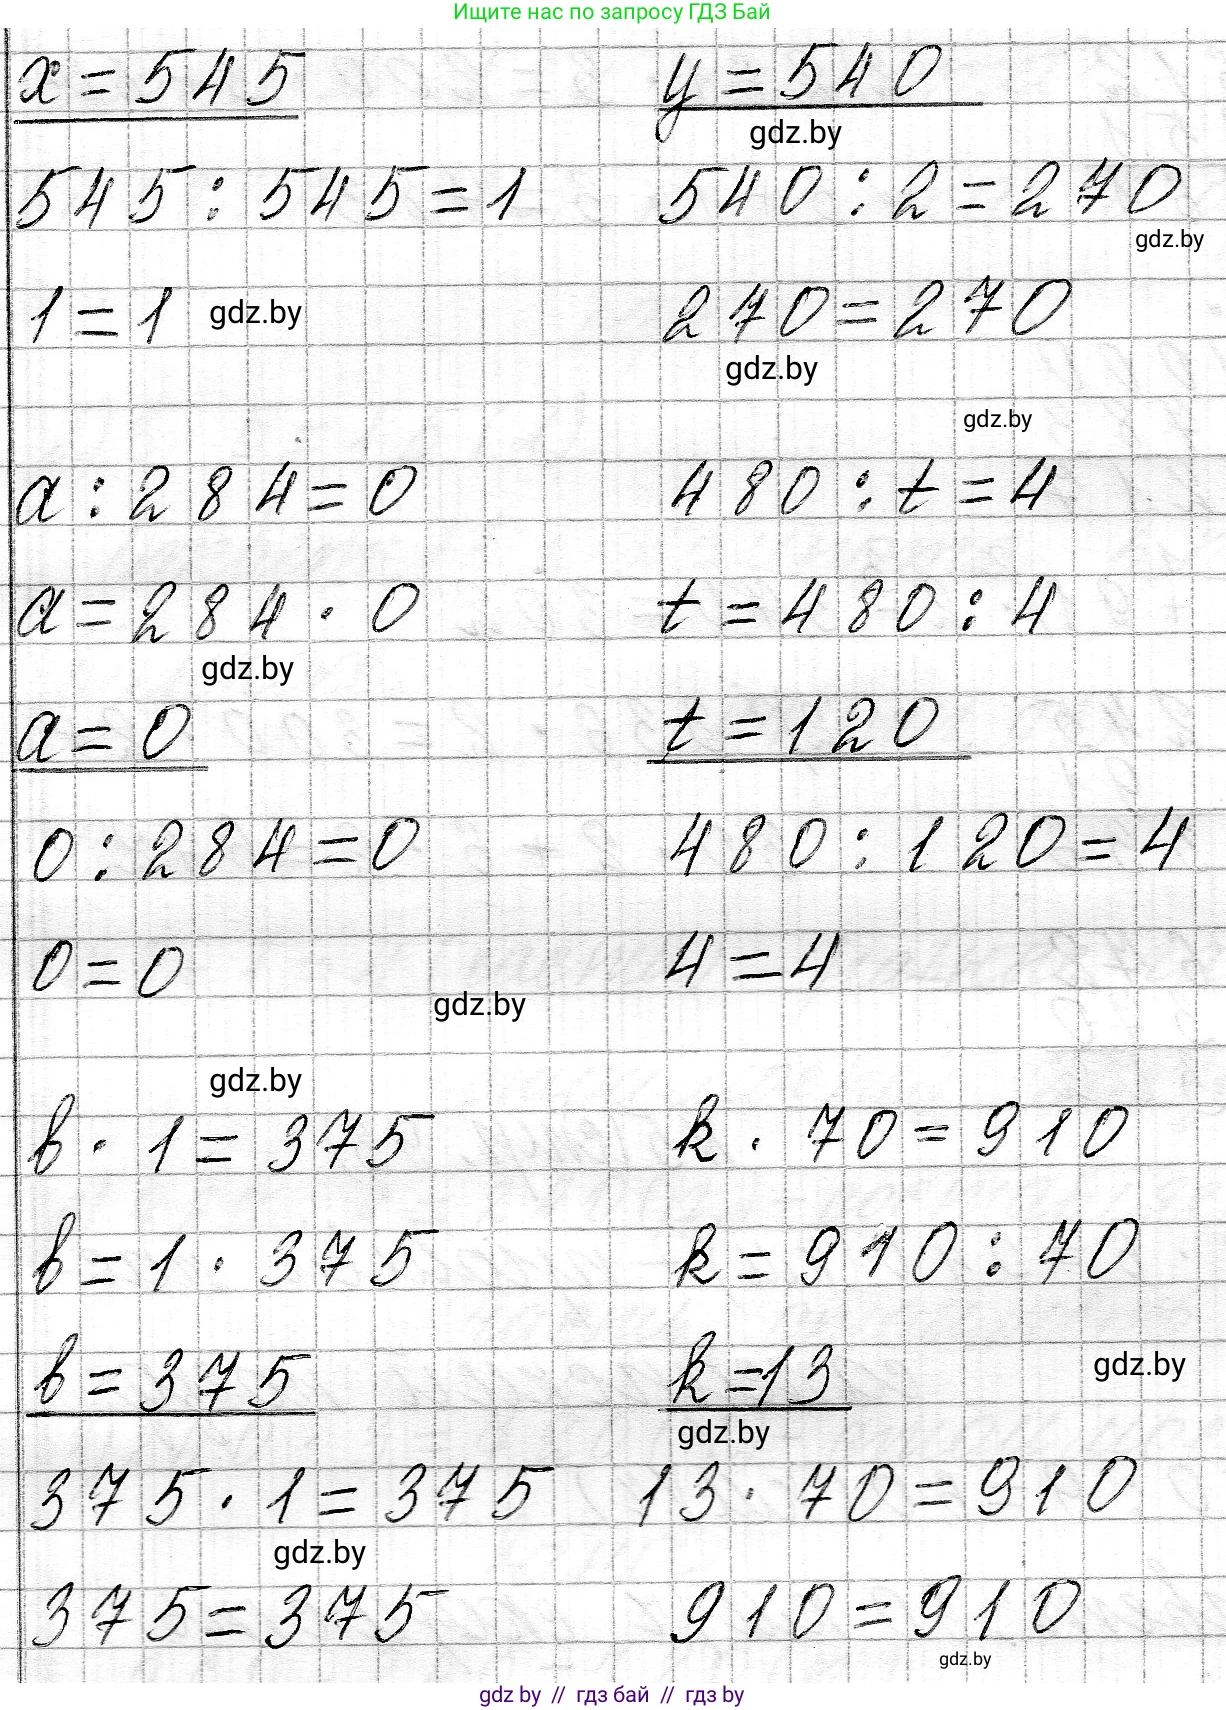 Ищите нас по запросу ГДЗ Бай
x = 545
y = 540
gdz.by
545 : 545 = 1
540 : 2 = 270
gdz.by
1 = 1
gdz.by
270 = 270
gdz.by
gdz.by
a : 284 = 0
480 : t = 4
a = 284 · 0
t = 480 : 4
gdz.by
a = 0
t = 120
0 : 284 = 0
480 : 120 = 4
0 = 0
4 = 4
gdz.by
gdz.by
b · 1 = 375
k · 70 = 910
b = 1 · 375
k = 910 : 70
b = 375
k = 13
gdz.by
gdz.by
375 · 1 = 375
13 · 70 = 910
gdz.by
375 = 375
910 = 910
gdz.by
gdz by // гдз бай // гдз by